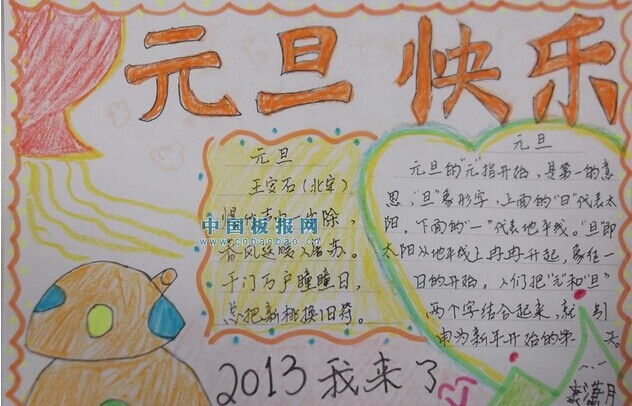 元旦快乐
元旦
王安石(北宋)
声中一岁除,
春风送暖入屠苏。
千门万户瞳瞳日,
总把新桃换旧符。
中国板报网
www.cnbanbao.cn
元旦
元旦的"元"指开始,是第一的意
思,"旦"象形字,上面的"日"代表太
阳,下面的"一"代表地平线。"旦"即
太阳从地平线上冉冉升起,象征一
日的开始。人们把"元"和"旦"
两个字结合起来,就
申为新年开始的第一天。
2013我来了
潇月